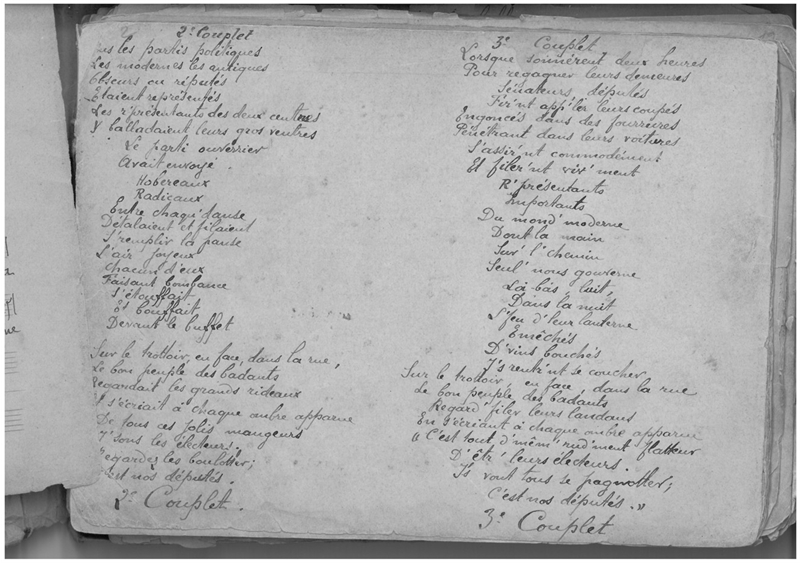 2e Couplet
Tus les partis politiques
Les modernes les antiques
Obscurs ou réputés
Etaient représentés
Les r'présentants des deux centres
Y balladaient leurs gros ventres
Le parti ouverrier
Avait envoyé.
Hobereaux
Radicaux
Entre chaqu' danse
Détalaient et filaient
S'remplir la panse
L'air joyeux
Chacun d'eux
Faisant bombance
S'étouffait
Et bouffait
Devant le buffet
Sur le trottoir, en face, dans la rue,
Le bon peuple des badants
Regardait les grands rideaux
Et s'écriait à chaque ombre apparue
De tous ces jolis mangeurs
J'sons les électeurs!
"egardez les boulotter;
est nos députés.
2e Couplet.
3e Couplet
Lorsque sonnèrent deux heures
Pour regagner leurs demeures
Sénateurs, députés
Fir'nt app'ler leurs coupés
Engoncés dans des fourrures
Pénétrant dans leurs voitures
S'assir'nt commodément
Et filèr'nt viv'ment
R'présentants
Importants
Du mond' moderne
Dont la main
Sur l'chemin
Seul' nous gouverne
Là-bas, luit,
Dans la nuit
L'feu d'leur lanterne
Emêchés
D'vins bouchés
I's rentr'nt se coucher
Sur le trottoir, en face, dans la rue
Le bon peuple des badants
Regard' filer leurs landaus
En s'écriant à chaque ombre apparue
"C'est tout d'mêm' rud'ment flatteur
D'êtr' leurs électeurs.
I's vont tous se pagnotter;
C'est nos députés."
3e Couplet